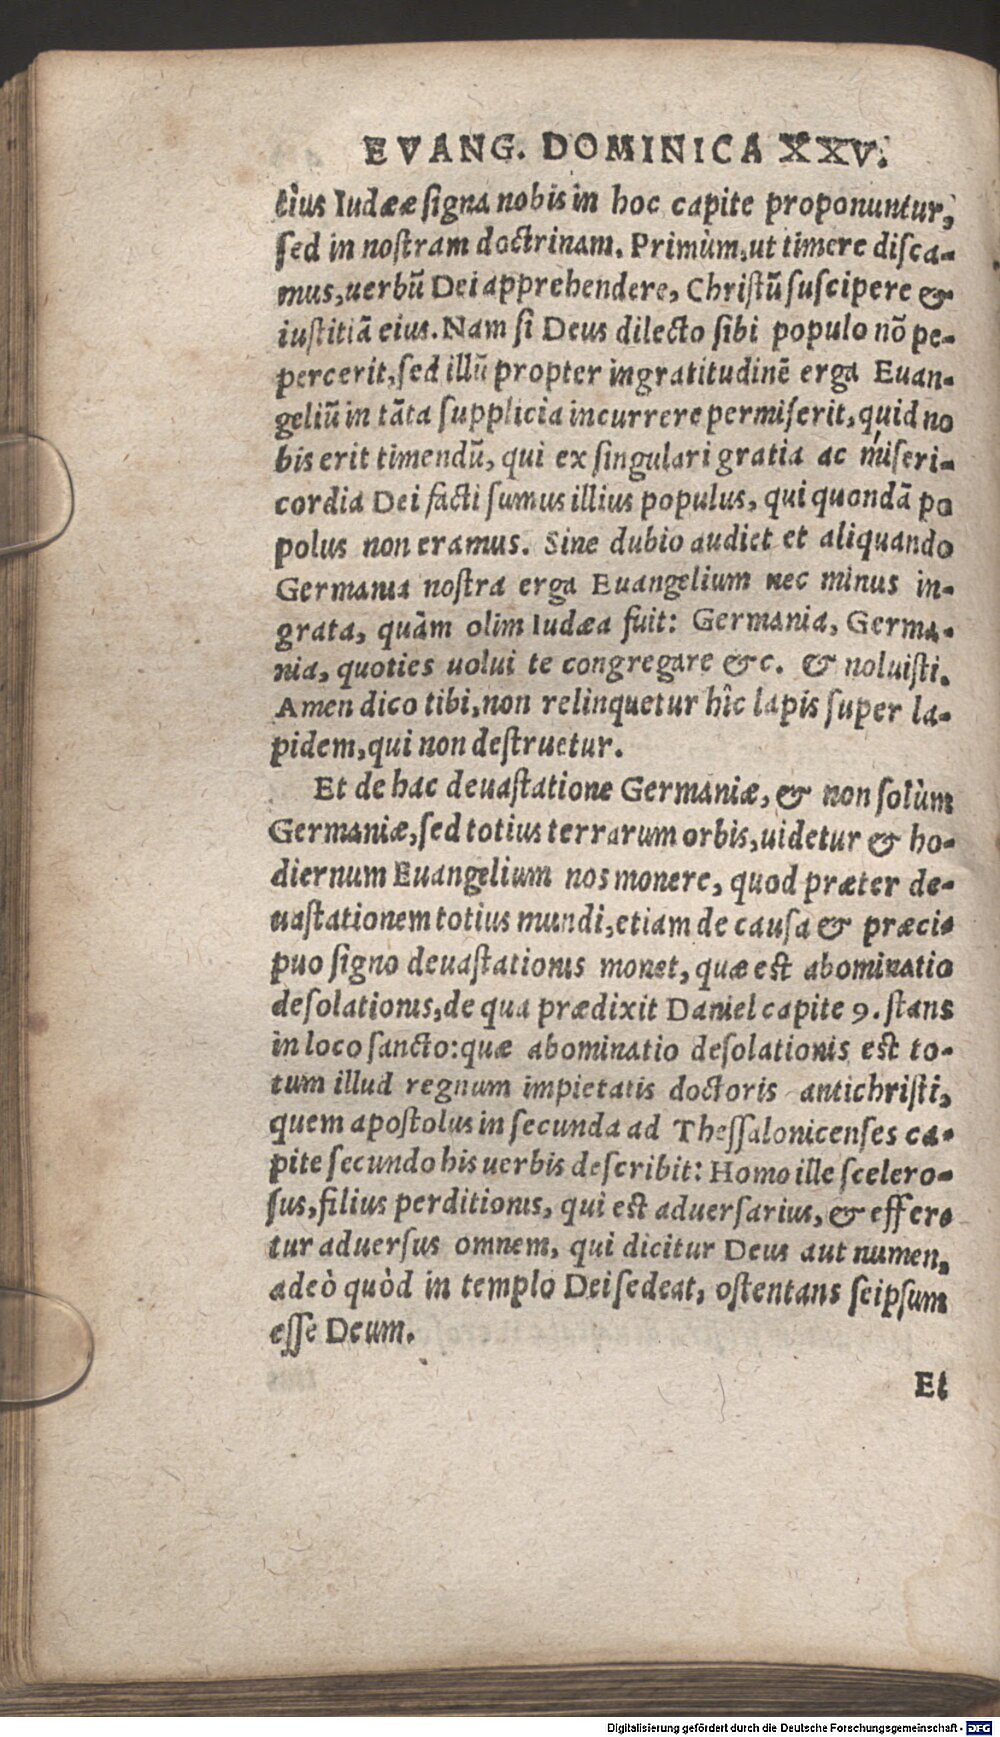 EVANG. DOMINICA XXV.
tius Iudææ signa nobis in hoc capite proponuntur,
sed in nostram doctrinam. Primùm, ut timere disca-
mus, uerbũ Dei apprehendere, Christũ suscipere &
iustitiã eius. Nam si Deus dilecto sibi populo nõ pe-
percerit, sed illũ propter ingratitudinẽ erga Euan-
geliũ in tãta supplicia incurrere permiserit, quid no
bis erit timendũ, qui ex singulari gratia ac miseri-
cordia Dei facti sumus illius populus, qui quondã po
polus non eramus. Sine dubio audiet et aliquando
Germania nostra erga Euangelium nec minus in-
grata, quàm olim Iudæa fuit: Germania, Germa-
nia, quoties uolui te congregare &c. & noluisti.
Amen dico tibi, non relinquetur hîc lapis super la-
pidem, qui non destruetur.
Et de hac deuastatione Germaniæ, & non solùm
Germaniæ, sed totius terrarum orbis, uidetur & ho-
diernum Euangelium nos monere, quod præter de-
uastationem totius mundi, etiam de causa & præci-
puo signo deuastationis monet, quæ est abominatio
desolationis, de qua prædixit Daniel capite 9. stans
in loco sancto: quæ abominatio desolationis est to-
tum illud regnum impietatis doctoris antichristi,
quem apostolus in secunda ad Thessalonicenses ca-
pite secundo his uerbis describit: Homo ille scelero-
sus, filius perditionis, qui est aduersarius, & effere
tur aduersus omnem, qui dicitur Deus aut numen,
adeò quòd in templo Dei sedeat, ostentans seipsum
esse Deum.
Et
Digitalisierung gefördert durch die Deutsche Forschungsgemeinschaft - DFG